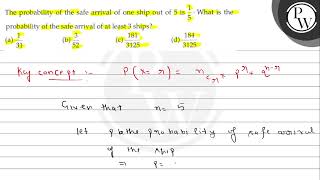 The probability of the safe arrival of one ship out of 5 is 1/5. What is the
probability of the safe arrival of at least 3 ships?
(a) 1/31 (b) 3/52 (c) 181/3125 (d) 184/3125
PW
Key concept :-
P(x = r) = nCr × p^r × q^n-r
Given that n = 5
let p be the probability of safe arrival
of the ship
⇒ p =